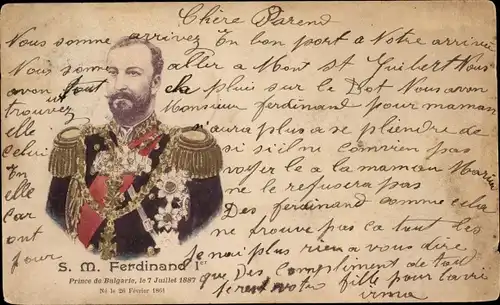 Chère Parend
Vous somme arrivez En bon port a Notre arrivez
Nous somme aller a Mont st Guibert Nous
avon tout la pluis sur le Dot Nous avon
trouvez un Monsieur ferdinand pour maman
elle n'aura plus a se pliendre de
celui si si il ne comprien pas
En le a la maman
elle ne le refusera pas
Car Des ferdinand somme cela
ont ne trouve pas ca tout les
pour je n'ai plus rien a vous dire
que Des compliment de tout
votre fille pour la vri
irma
S. M. Ferdinand Ier
Prince de Bulgarie, le 7 Juillet 1887
Né le 26 Février 1861